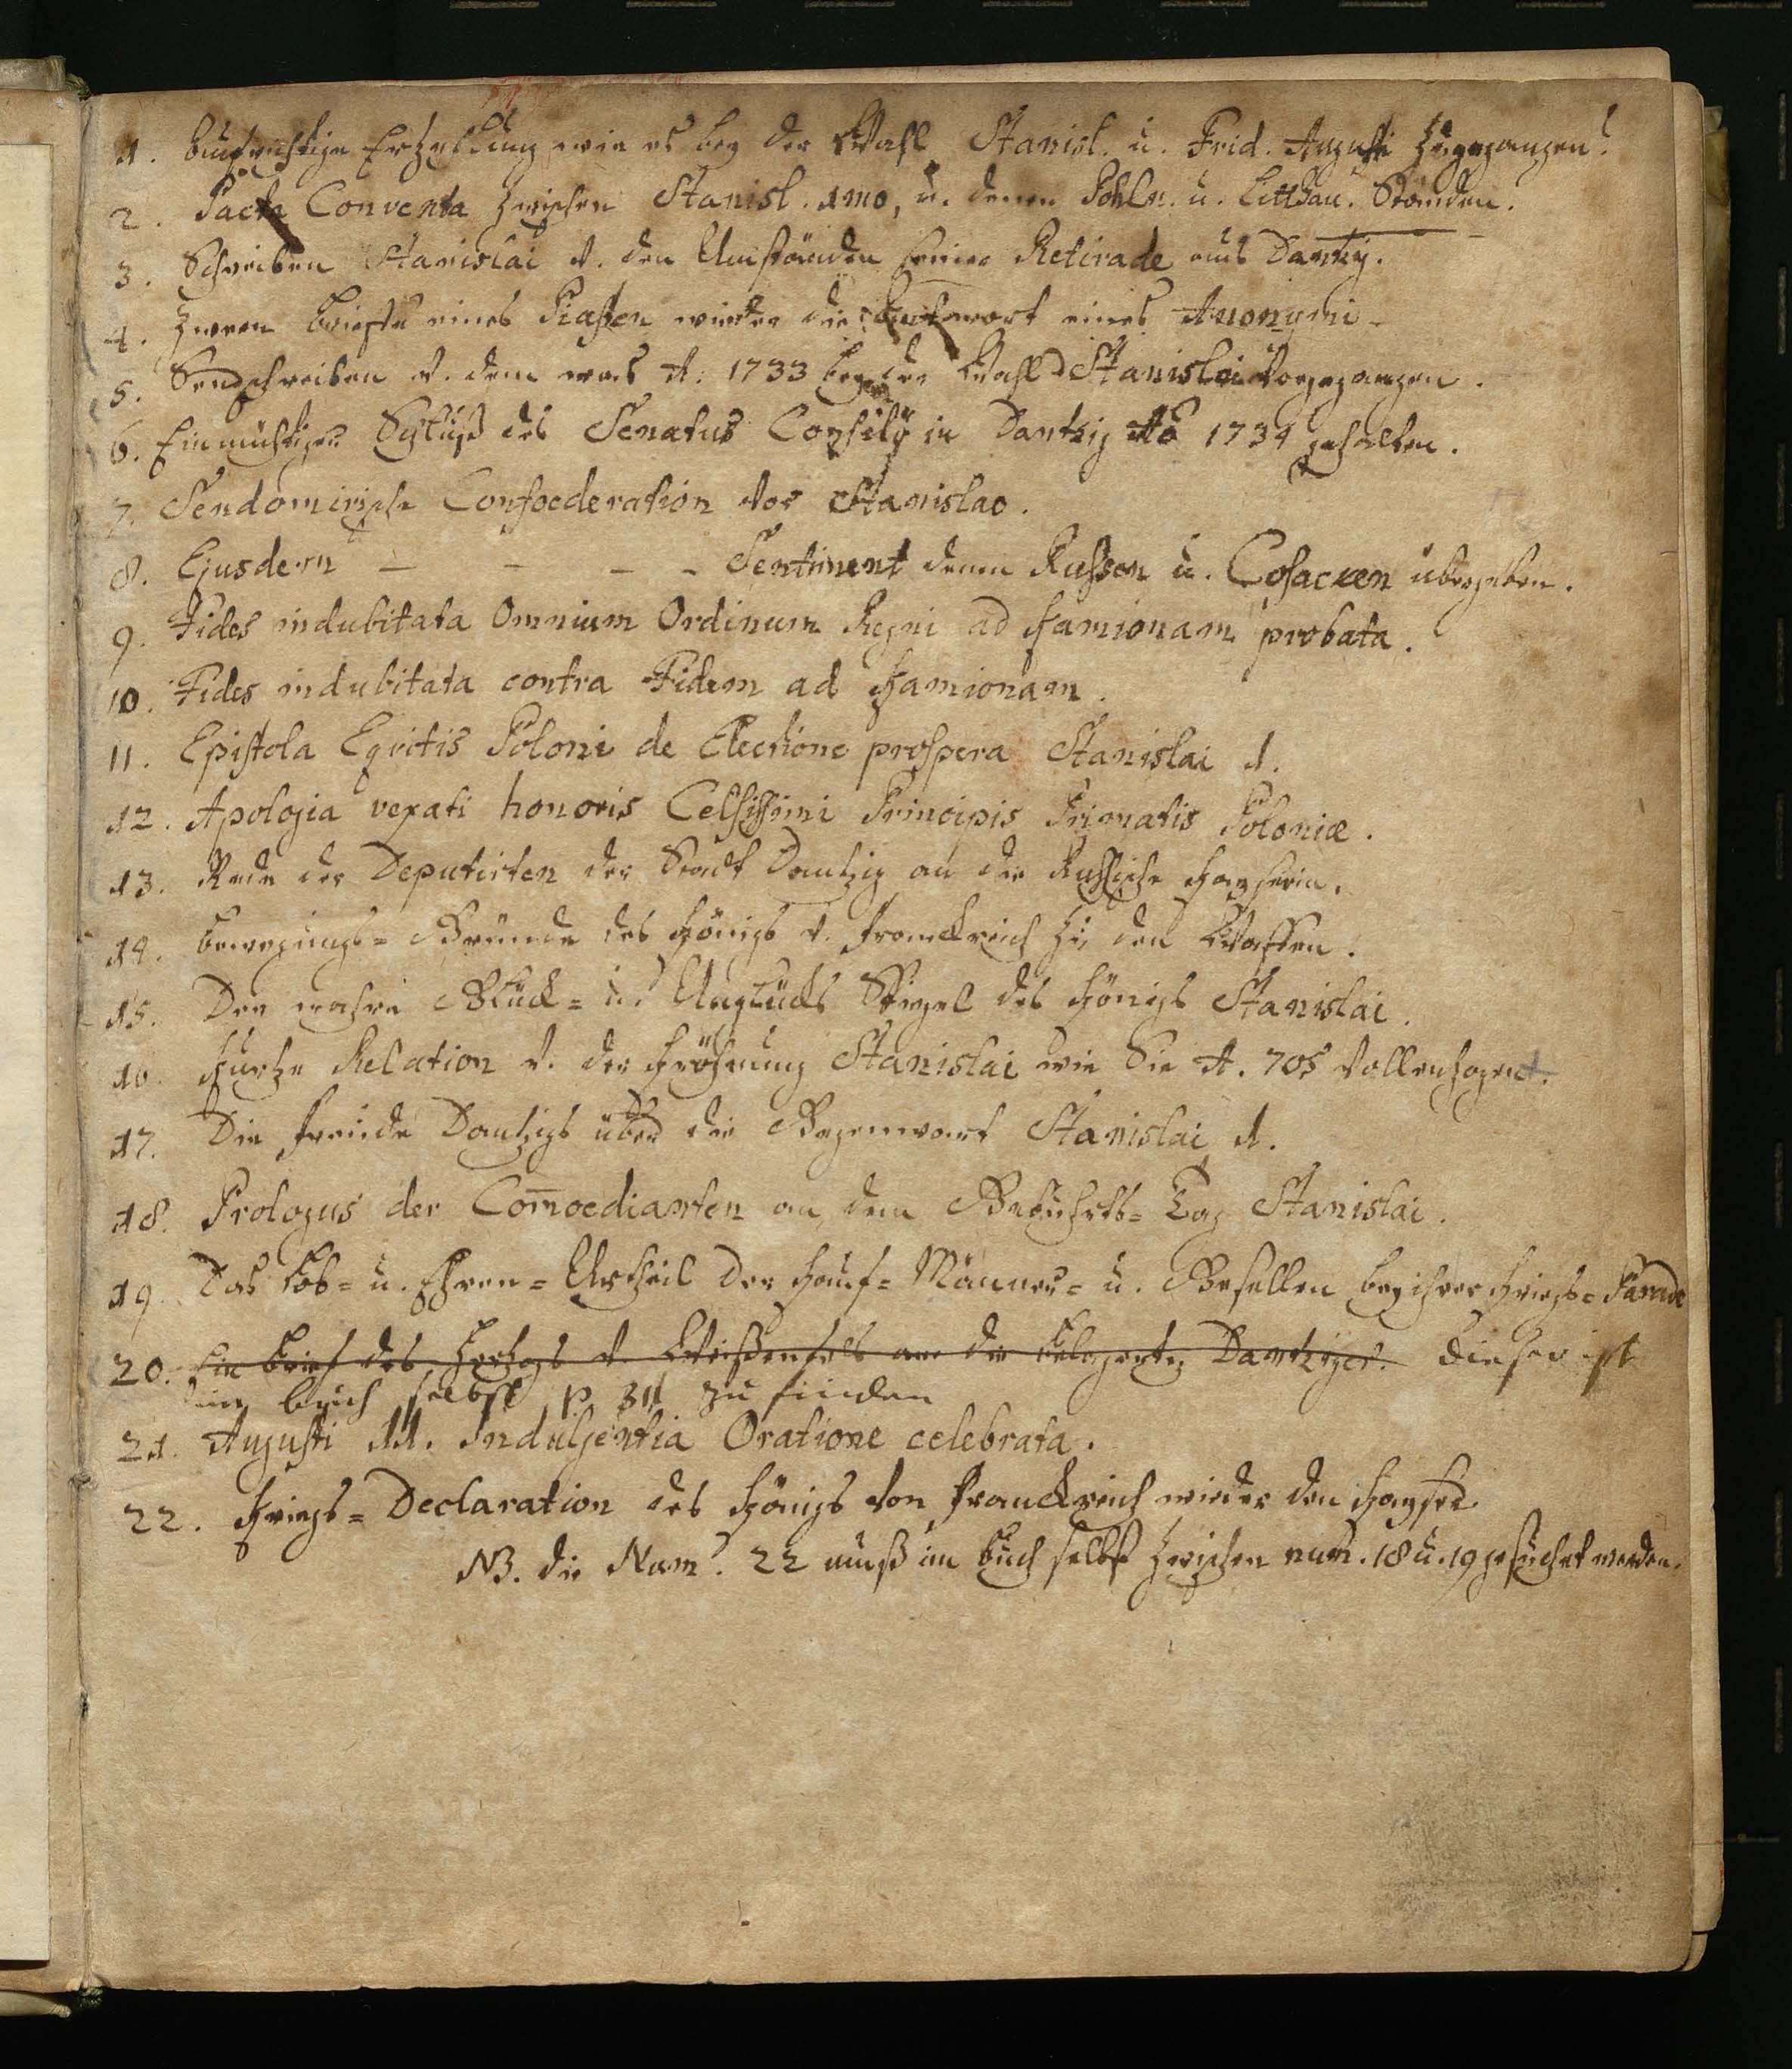 1. Aufrichtige Erzehlung wie es bey der Wahl Stanisl. u. Frid. Augusti zugegangen.
2. Pacta Conventa zwischen Stanisl. 1mo, u. denen Pohln. u. Litthau. Ständen.
3. Schreiben Stanislai v. den Umständen seiner Retirade aus Dantzig.
4. Zween Brieffe eines Piasten wieder die Antwort eines Anonymi
5. Sendschreiben v. dem was A. 1733 bey der Wahl Stanislai vorgegangen.
6. Einmüthiger Schluß des Senatus Consilÿ in Dantzig Ao 1734 gehalten.
7. Sendomirische Confoederation vor Stanislao.
8. Ejusdem – – – – Sentiment denen Russen u. Cosacken übergeben.
9. Fides indubitata Omnium Ordinum Regni ad Kamionam probata.
10. Fides indubitata contra Fidem ad Kamionam.
11. Epistola Eqvitis Poloni de Electione prospera Stanislai 1.
12. Apologia vexati honoris Celsissimi Principis Primatis Poloniæ.
13. Rede der Deputirten der Stadt Dantzig an die Russische Kayserin.
14. Bewegungs= Gründe des Königs v. Franckreich zu den Waffen.
15. Der wahre Glück= u. Unglücks Spiegel des Königs Stanislai.
16. Kurtze Relation v. der Kröhnung Stanislai wie Sie A. 705 vollenzogen.
17. Die Freude Dantzigs über die Gegenwart Stanislai 1.
18. Prologus der Comoedianten an dem Gebuhrts= Tag Stanislai.
19. Das Lob= u. Ehren= Urtheil der Kauf= Männer= u. Gesellen bey ihrer Kriegs= Parade
20. Ein Brief des Hertzogs v. Weißenfels an die belagerte Dantziger. Dieser ist
im buch selbst p. 311 zu finden
21. Augusti 11. Indulgentia Oratione celebrata.
22. Kriegs= Declaration des Königs von Franckreich wieder den Kayser.
NB. die Num. 22 muß im Buch selbst zwischen num. 18 u. 19 gesuchet werden.